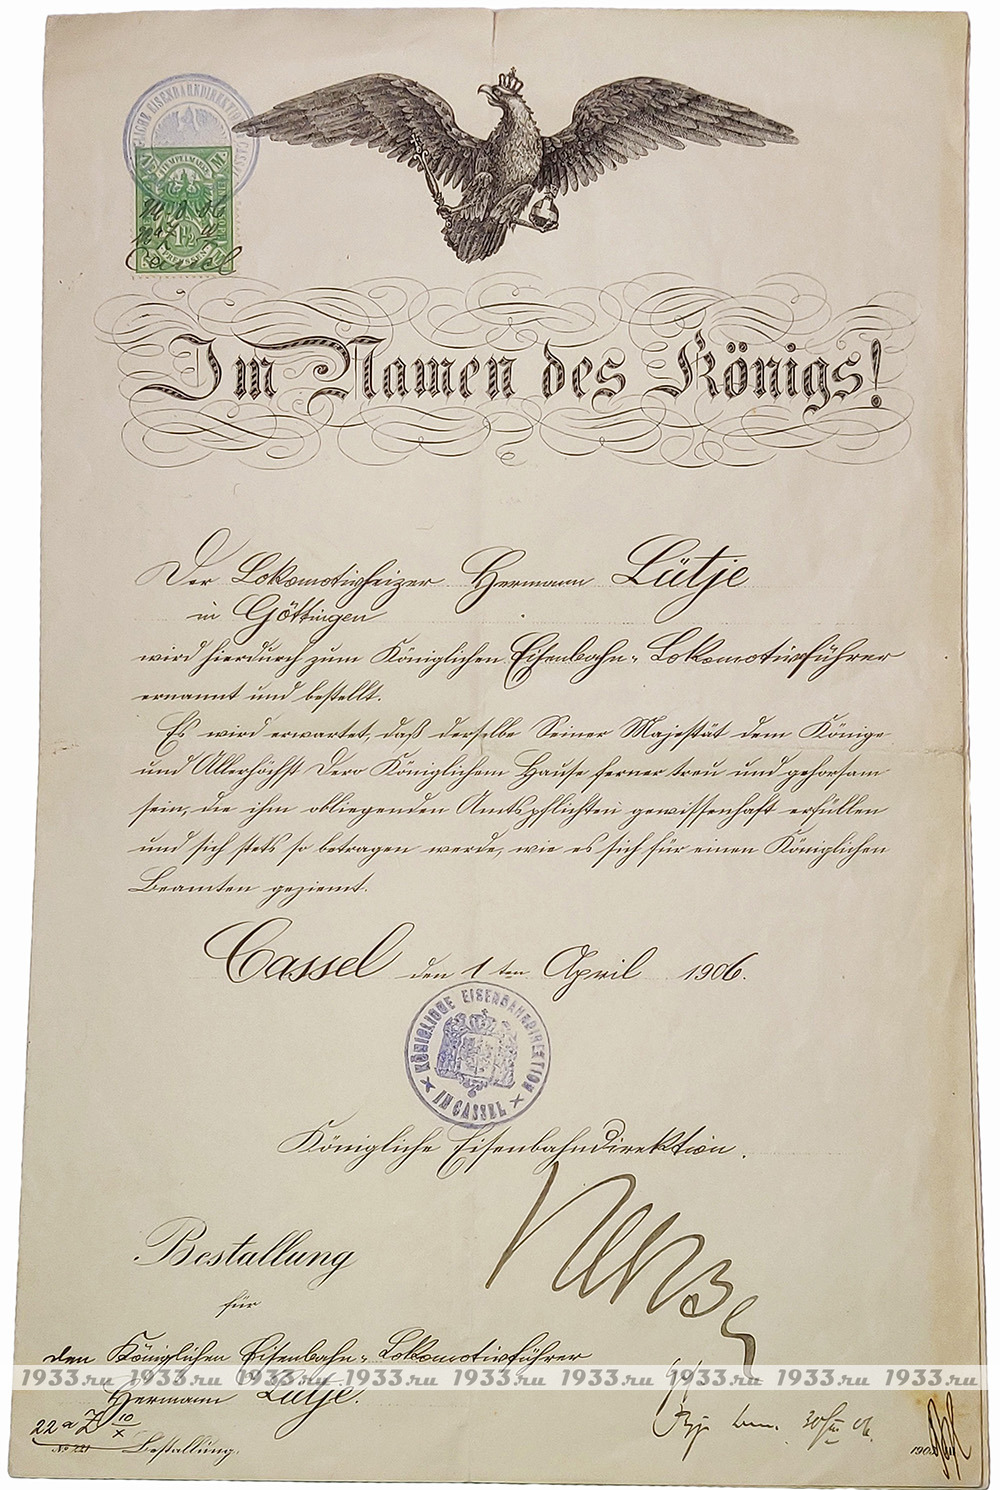 KÖNIGLICHE EISENBAHNDIREKTION CASSEL
STEMPELMARKE
M M
1½
PREUSSEN
Cassel
Im Namen des Königs!
Der Lokomotivheizer Hermann Lütje
in Göttingen
wird hierdurch zum Königlichen Eisenbahn-Lokomotivführer
ernannt und bestellt.
Es wird erwartet, daß derselbe Seiner Majestät dem Könige
und Allerhöchst Dero Königlichem Hause ferner treu und gehorsam
sein, die ihm obliegenden Amtspflichten gewissenhaft erfüllen
und sich stets so betragen werde, wie es sich für einen Königlichen
Beamten geziemt.
Cassel den 1ten April 1906.
KÖNIGLICHE EISENBAHNDIREKTION
IN CASSEL
Königliche Eisenbahndirektion.
Bestallung
für
den Königlichen Eisenbahn-Lokomotivführer
1933.ru 1933.ru 1933.ru 1933.ru 1933.ru 1933.ru 1933.ru 1933.ru 1933.ru
Hermann Lütje.
22a Z 10/X
No 221 Bestallung.